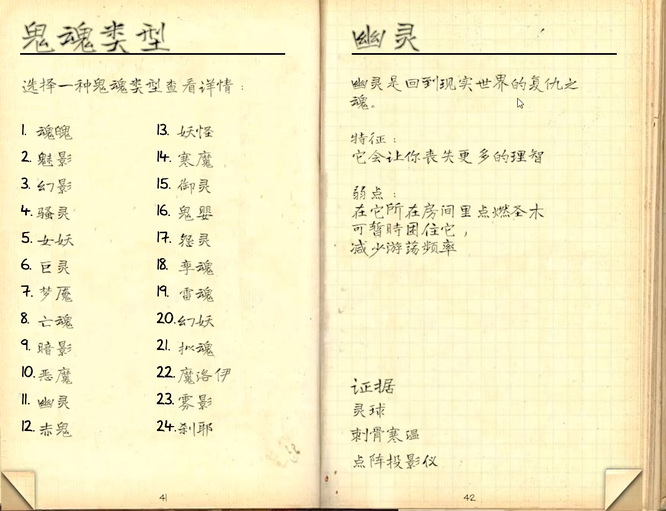 鬼魂类型
选择一种鬼魂类型查看详情：
1. 魂魄
2. 魅影
3. 幻影
4. 骚灵
5. 女妖
6. 巨灵
7. 梦魇
8. 亡魂
9. 暗影
10. 恶魔
11. 幽灵
12. 赤鬼
13. 妖怪
14. 寒魔
15. 御灵
16. 鬼婴
17. 怨灵
18. 孪魂
19. 雷魂
20. 幻妖
21. 拟魂
22. 魔洛伊
23. 雾影
24. 刹耶
41
幽灵
幽灵是回到现实世界的复仇之
魂。
特征：
它会让你丧失更多的理智
弱点：
在它所在房间里点燃圣木
可暂时困住它，
减少游荡频率
证据
灵球
刺骨寒温
点阵投影仪
42